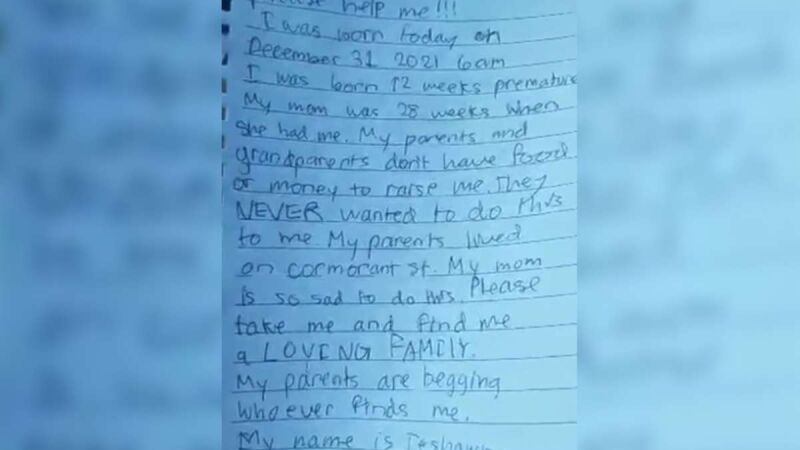 help me!!!
I was born today on
December 31 2021 6am
I was born 12 weeks premature
My mom was 28 weeks when
she had me. My parents and
grandparents don't have food
or money to raise me. They
NEVER wanted to do this
to me. My parents lived
on cormorant st. My mom
is so sad to do this. Please
take me and find me
a LOVING FAMILY.
My parents are begging
whoever finds me.
My name is